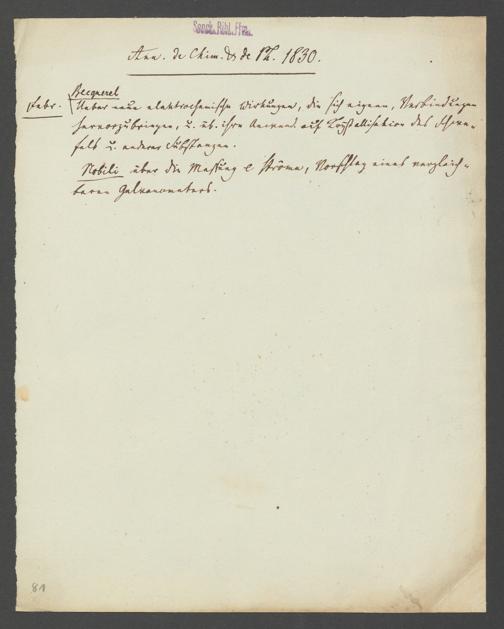 Senck. Bibl. Ffm.
Ann. de Chim. & de Ph. 1830.
Becquerel
Febr. Ueber neue elektrochemische Wirkungen, die sich eignen, Verbindungen
hervorzubringen, u. üb. ihre Anwend. auf Krystallisation des Schwe-
fels u. anderer Substanzen.
Nobili über die Messung e Ströme, Vorschlag eines vergleich-
baren Galvanometers.
81